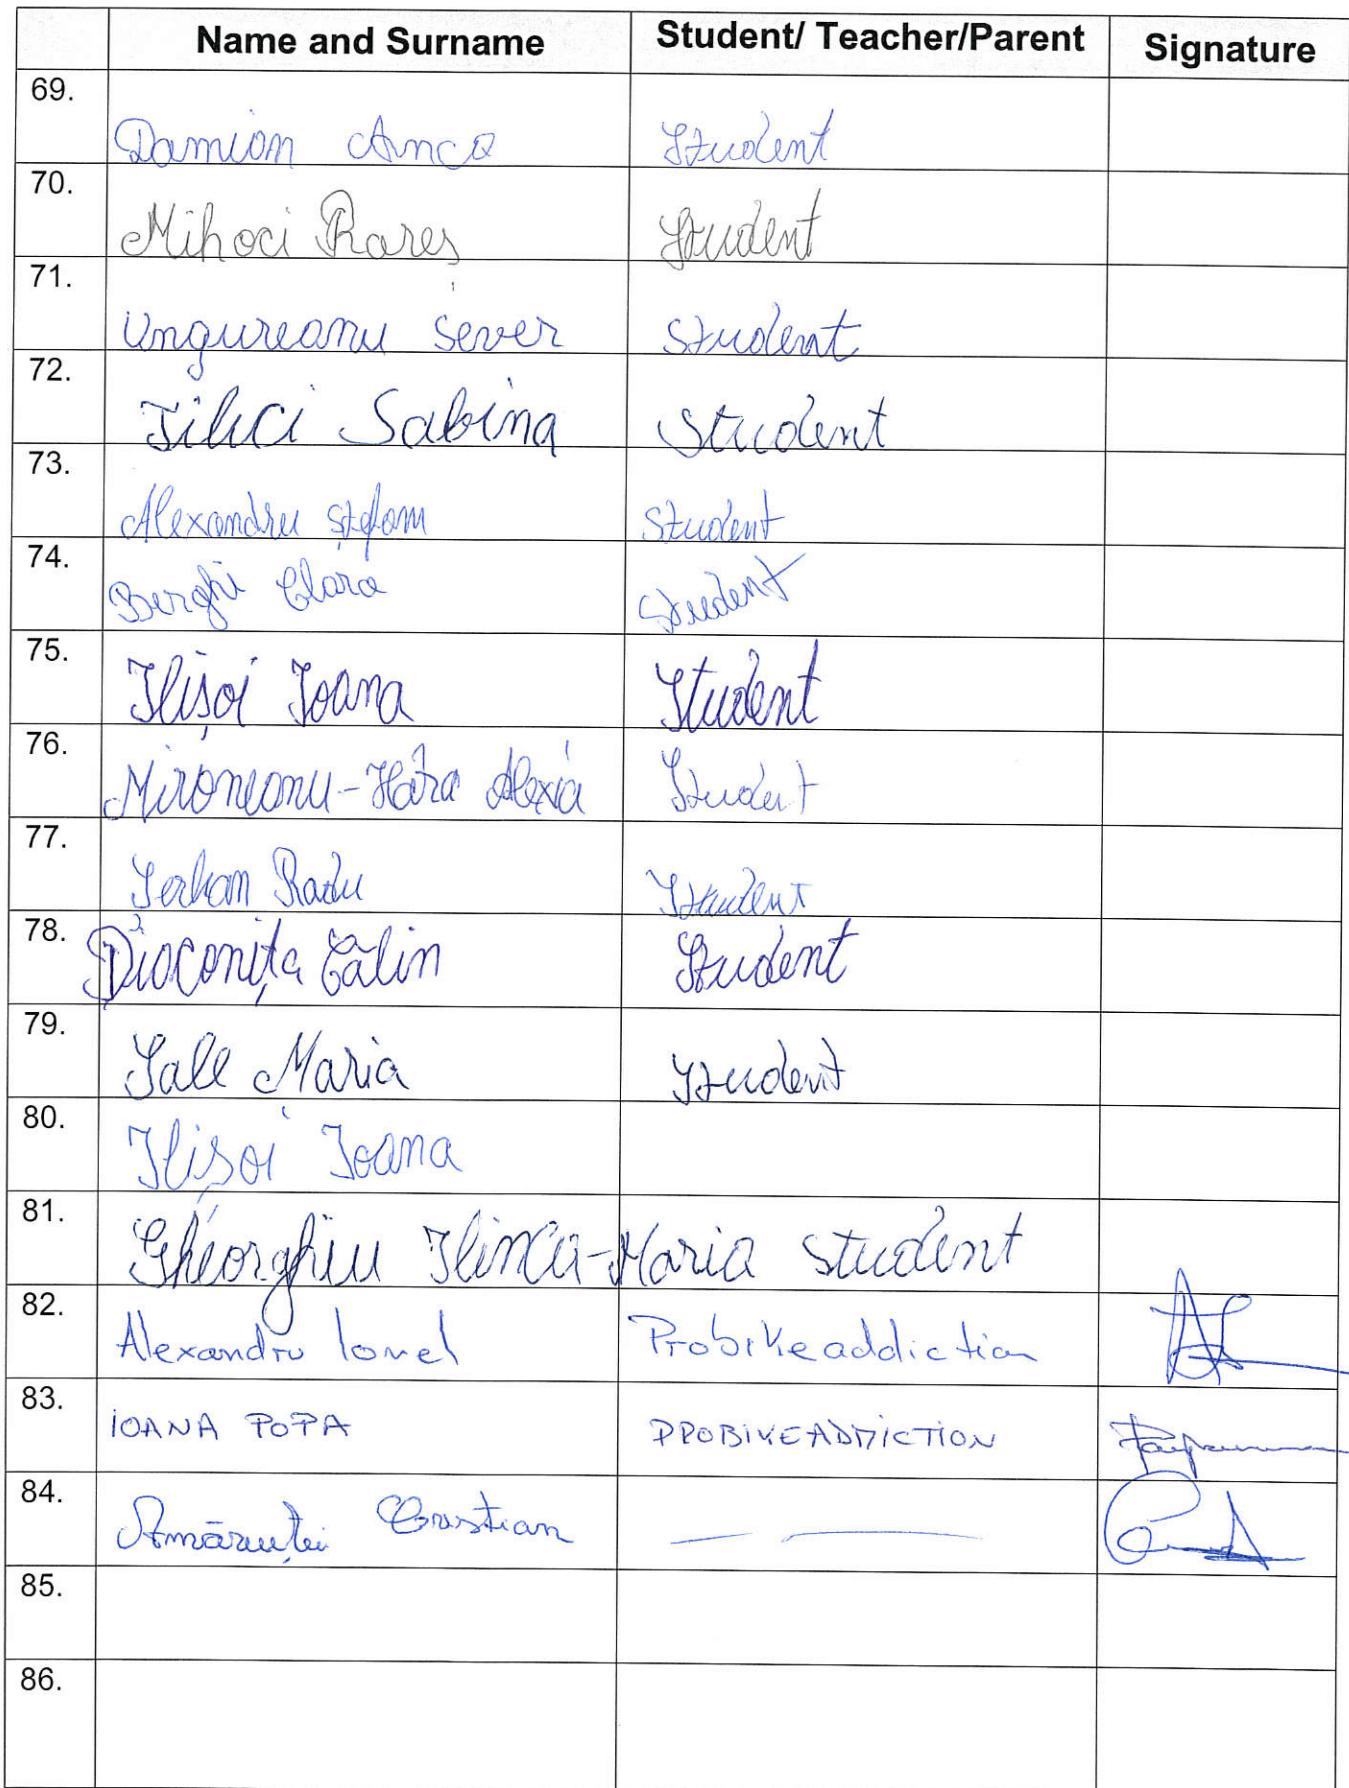 Name and Surname Student/ Teacher/Parent Signature
69. Damian Anca Student
70. Mihoci Rareș Student
71. Ungureanu Sever Student
72. Sabina Student
73. Alexandru Ștefan Student
74. Berghi Clara Student
75. Ilișoi Ioana Student
76. Mironeanu-Hâra Alexia Student
77. Șerban Radu Student
78. Diaconița Călin Student
79. Sale Maria Student
80. Ilișoi Ioana
81. Gheorghiu Ilinca-Maria student
82. Alexandru Ionel Probikeaddiction
83. IOANA POPA PROBIKEADDICTION
84. Amăruței Cristian
85.
86.